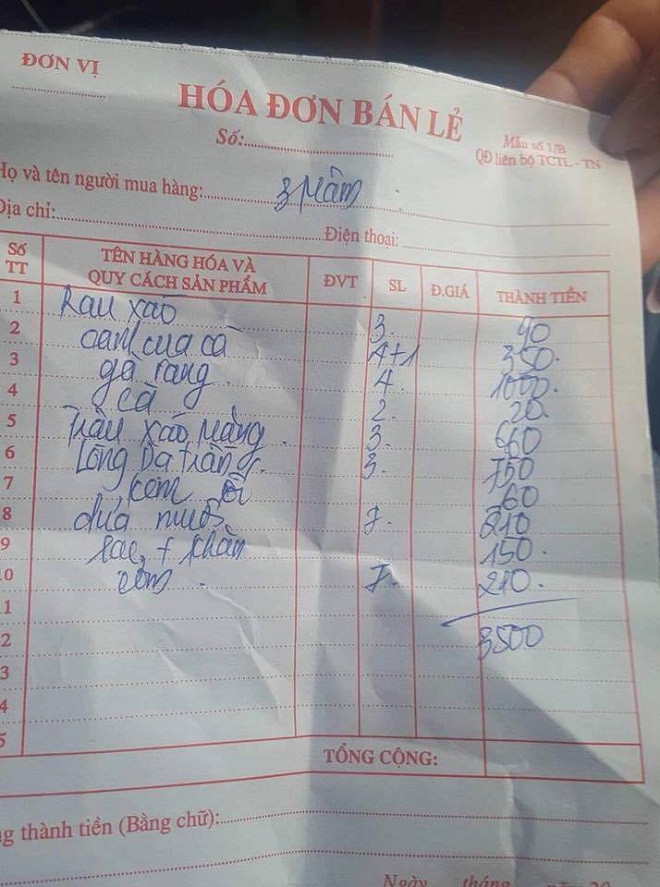 ĐƠN VỊ
HÓA ĐƠN BÁN LẺ
Số:
Mẫu số 1/B
QĐ liên bộ TCTL - TN
Họ và tên người mua hàng: 3 mâm
Địa chỉ:
Điện thoại:
Số TT TÊN HÀNG HÓA VÀ QUY CÁCH SẢN PHẨM ĐVT SL Đ.GIÁ THÀNH TIỀN
1 Rau xào 3. 90
2 canh cua cà 4+1 350.
3 gà rang. 4. 1000.
4 cà 2. 20.
5 Trâu xào măng. 3. 660
6 Lòng 3. 750
7 kem 60
8 dứa nước 7. 210
9 + khăn 150.
0 cơm. 7. 210.
1
2 3500
3
4
5
TỔNG CỘNG:
g thành tiền (Bằng chữ):
Ngày tháng năm 20